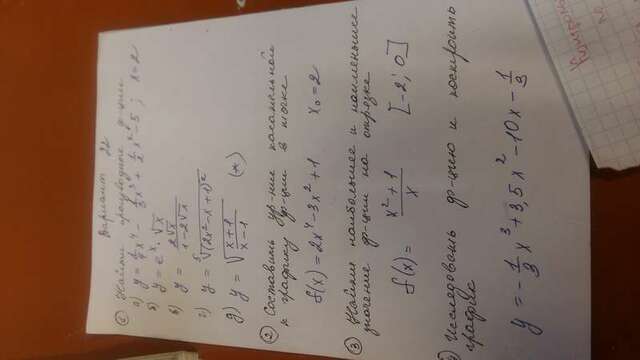 Вариант 22
① Найти производные ф-ции
а) y = 1/4 x⁴ - 1/3 x³ + 1/2 x² - 5 ; x=2
б) y = eˣ · √x
в) y = 2√x / (1-2√x)
г) y = ⁵√(2x²-x+1)²
д) y = √((x+1)/(x-1)) (*)
② Составить ур-ние касательной
к графику ф-ции в точке
f(x) = 2x⁴-3x²+1 x₀=2
③ Найти наибольшее и наименьшее
значение ф-ции на отрезке
f(x) = (x²+1)/x [-2; 0]
Исследовать ф-цию и построить
график
y = -1/3 x³ + 3,5x² - 10x - 1/3
по